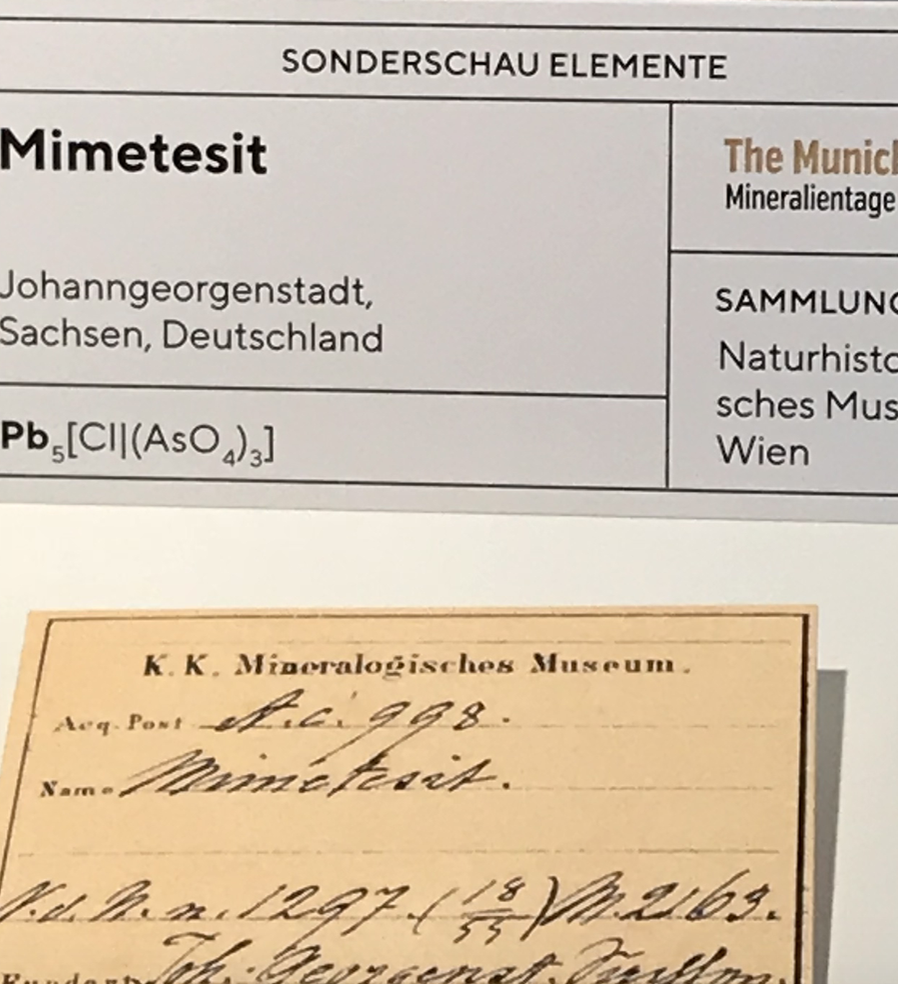 SONDERSCHAU ELEMENTE
Mimetesit
Johanngeorgenstadt,
Sachsen, Deutschland
Pb₅[Cl|(AsO₄)₃]
The Munich
Mineralientage
SAMMLUNG
Naturhisto
sches Mus
Wien
K. K. Mineralogisches Museum.
Acq. Post A.c. 998.
Name Mimetesit.
N. d. N. n. 1297. (18/55) M. 2163.
Fundort Joh. Georgenst.